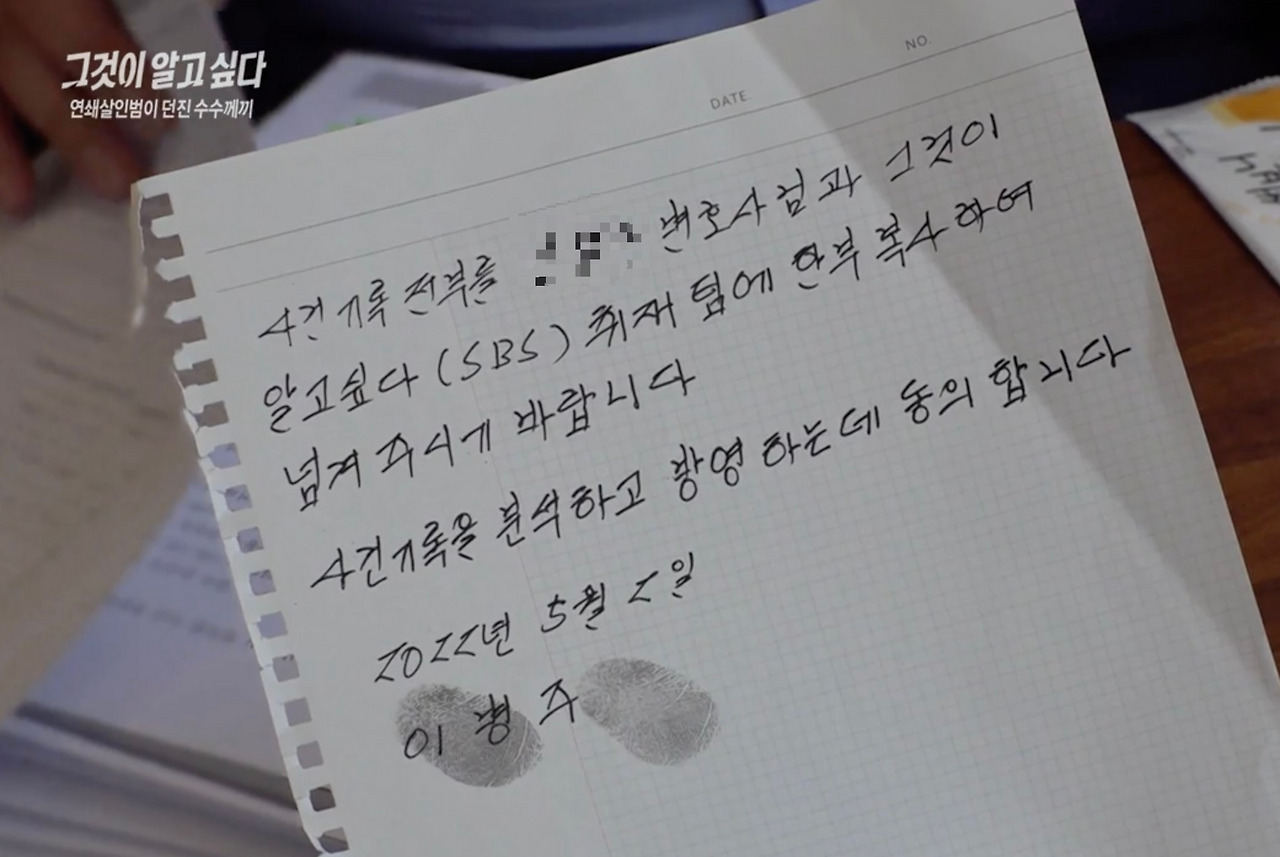 그것이 알고 싶다
연쇄살인범이 던진 수수께끼
NO.
DATE
사건기록 전부를 변호사님과 그것이
알고싶다 (SBS) 취재 팀에 한부 복사 하여
넘겨 주시기 바랍니다
사건기록을 분석하고 방영 하는데 동의 합니다
2022년 5월 2일
이 병 주